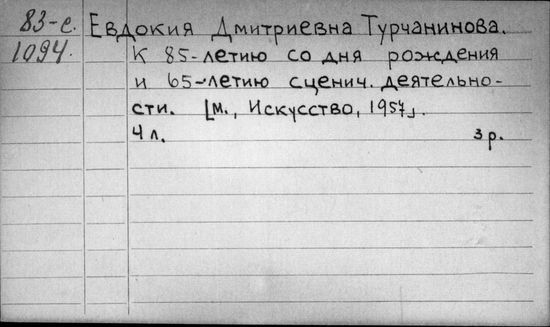 83-е. Евдокия Дмитриевна Турчанинова.
1094. К 85-летию со дня рождения
и 65-летию сценич. деятельно-
сти. [М., Искусство, 1957].
4 л. 3 р.